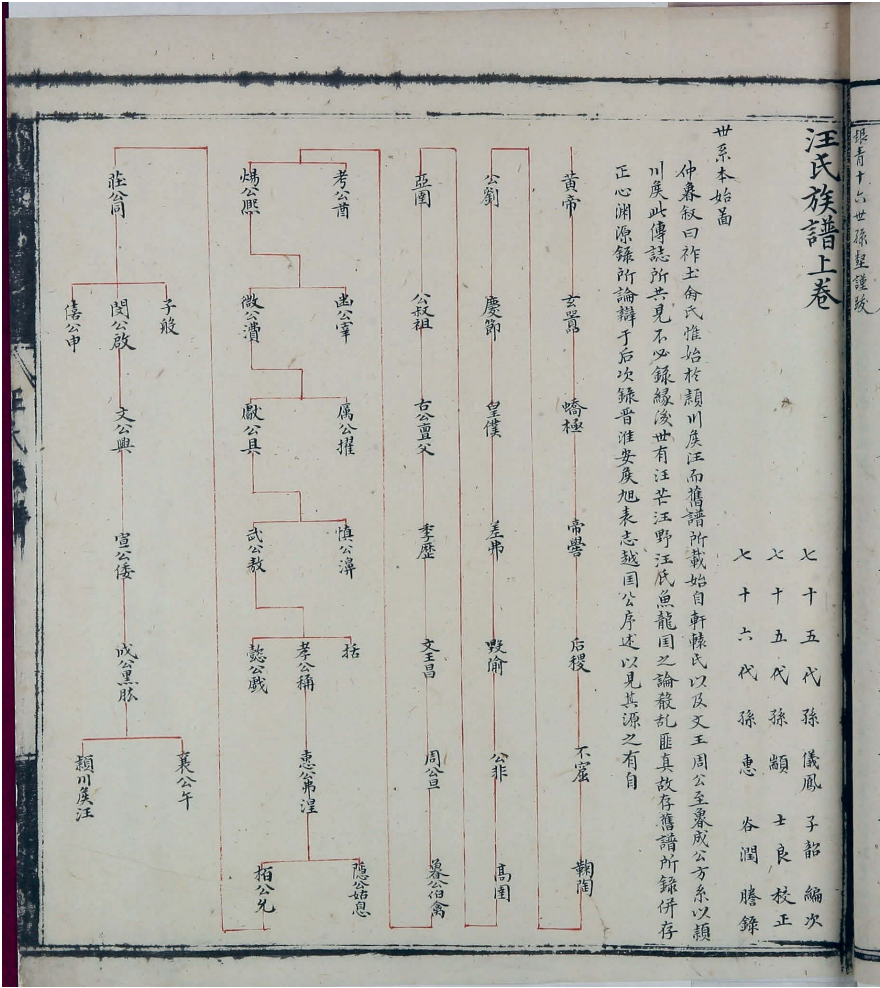 銀青十六世孫堅謹跋
汪氏族譜上卷
七十五代孫儀鳳子韶編次
七十五代孫顓士良校正
七十六代孫惠谷潤謄錄
世系本始啚
仲魯叙曰祚土命氏惟始於頴川矦汪而舊譜所載始自軒轅氏以及文王周公至魯成公方系以頴
川矦此傳誌所共見不必錄緣後世有汪芒汪野汪氏魚龍国之論殽乱匪真故存舊譜所錄併存
正心渊源錄所論辯于后次錄晋淮安矦旭表志越国公序述以見其源之有自
黄帝
玄囂
蟜極
帝嚳
后稷
不窋
鞠陶
公劉
慶節
皇僕
差弗
毀隃
公非
髙圉
亞圉
公叔祖
古公亶父
季歷
文王昌
周公旦
魯公伯禽
考公酋
煬公熈
幽公宰
微公㵒
厲公擢
獻公具
慎公濞
武公敖
括
孝公稱
懿公戲
惠公弗湟
隱公姑息
栢公允
莊公同
子般
閔公啟
僖公申
文公興
宣公倭
成公黒肱
襄公午
頴川矦汪
汪氏